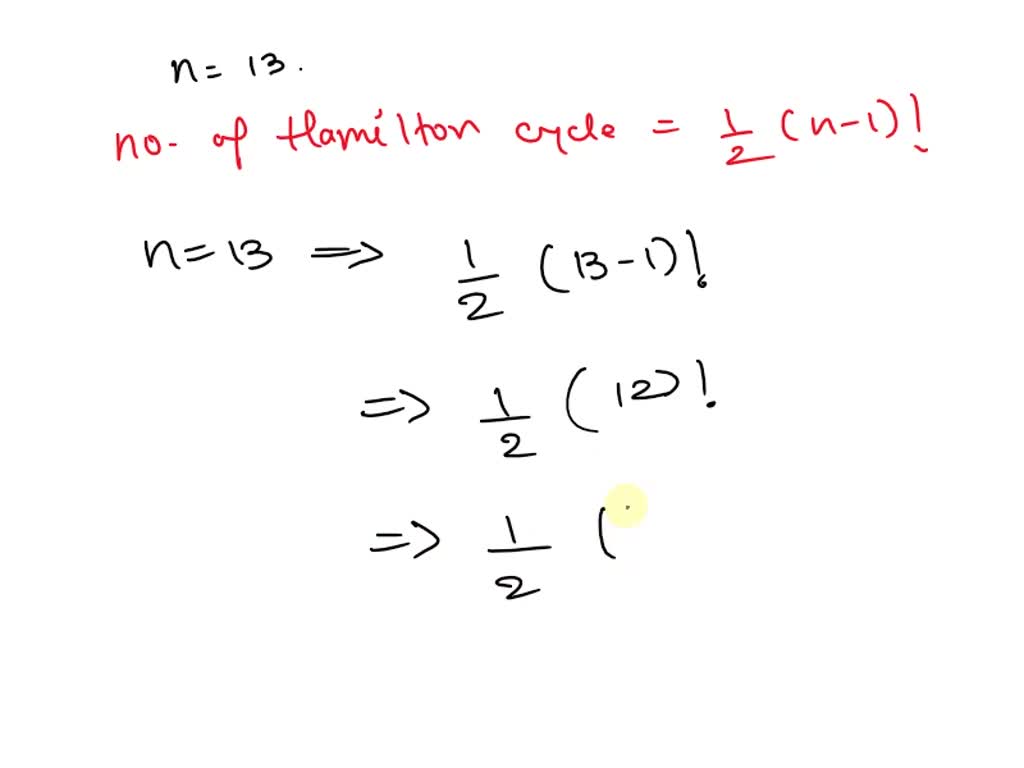 n = 13.
no. of Hamilton cycle = 1/2 (n-1)!
n = 13 => 1/2 (13-1)!
=> 1/2 (12)!
=> 1/2 (